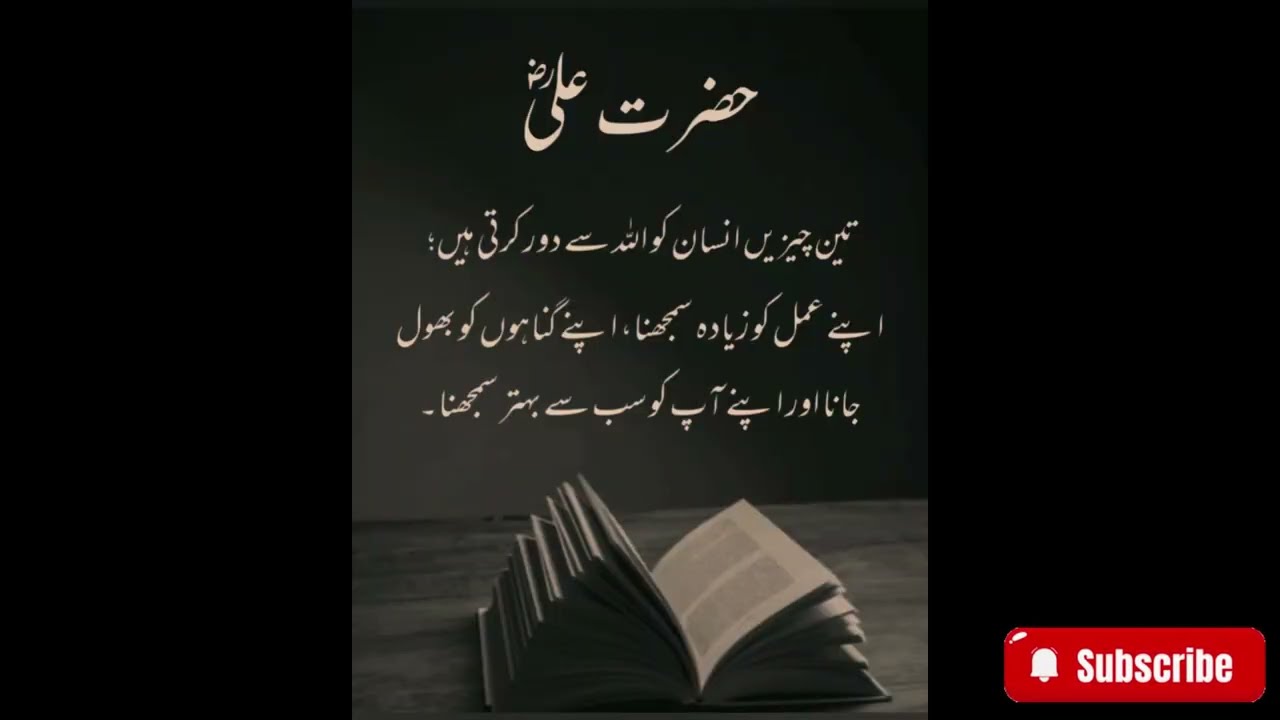 حضرت علیؓ
تین چیزیں انسان کو اللہ سے دور کرتی ہیں؛
اپنے عمل کو زیادہ سمجھنا، اپنے گناہوں کو بھول
جانا اور اپنے آپ کو سب سے بہتر سمجھنا۔
Subscribe